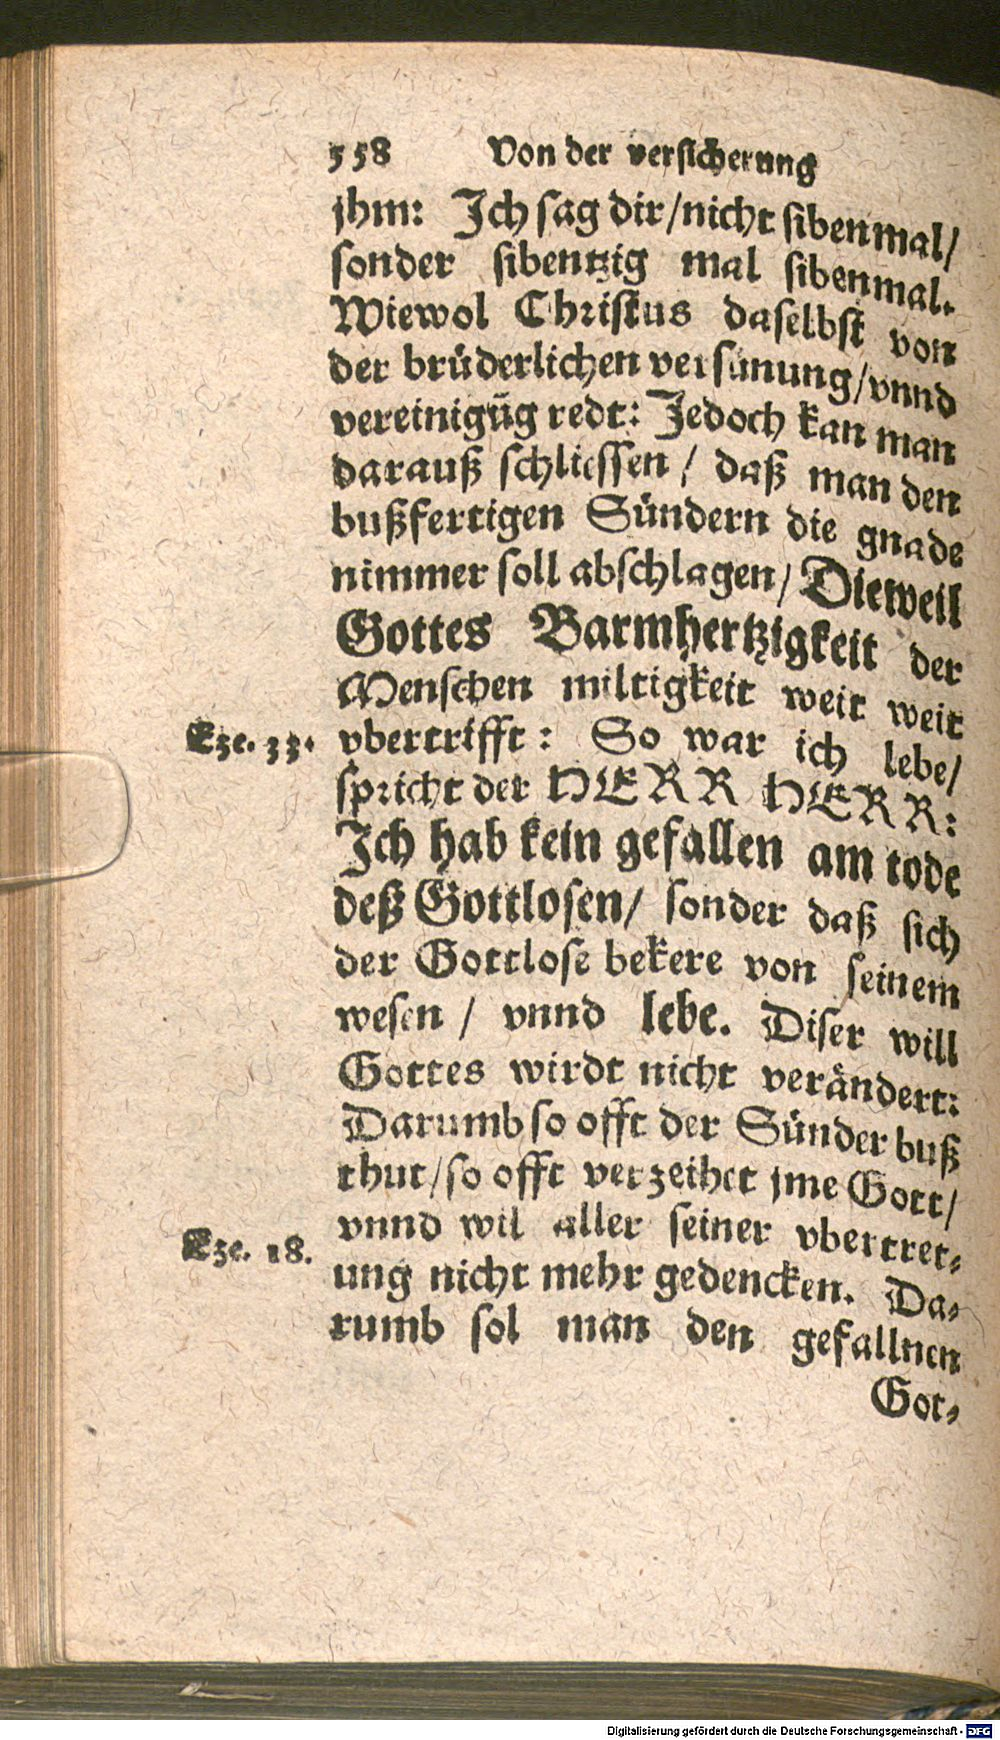 558 Von der versicherung
jhm: Ich sag dir/nicht sibenmal/
sonder sibentzig mal sibenmal.
Wiewol Christus daselbst von
der brüderlichen versünung/vnnd
vereinigūg redt: Jedoch kan man
darauß schliessen / daß man den
bußfertigen Sündern die gnade
nimmer soll abschlagen/ Dieweil
Gottes Barmhertzigkeit der
Menschen miltigkeit weit weit
Eze. 33. vbertrifft: So war ich lebe/
spricht der HERR HERR:
Ich hab kein gefallen am tode
deß Gottlosen/ sonder daß sich
der Gottlose bekere von seinem
wesen / vnnd lebe. Diser will
Gottes wirdt nicht verändert:
Darumb so offt der Sünder buß
thut/so offt verzeihet jme Gott/
vnnd wil aller seiner vbertret-
Eze. 18. ung nicht mehr gedencken. Da-
rumb sol man den gefallnen
Got-
Digitalisierung gefördert durch die Deutsche Forschungsgemeinschaft - DFG